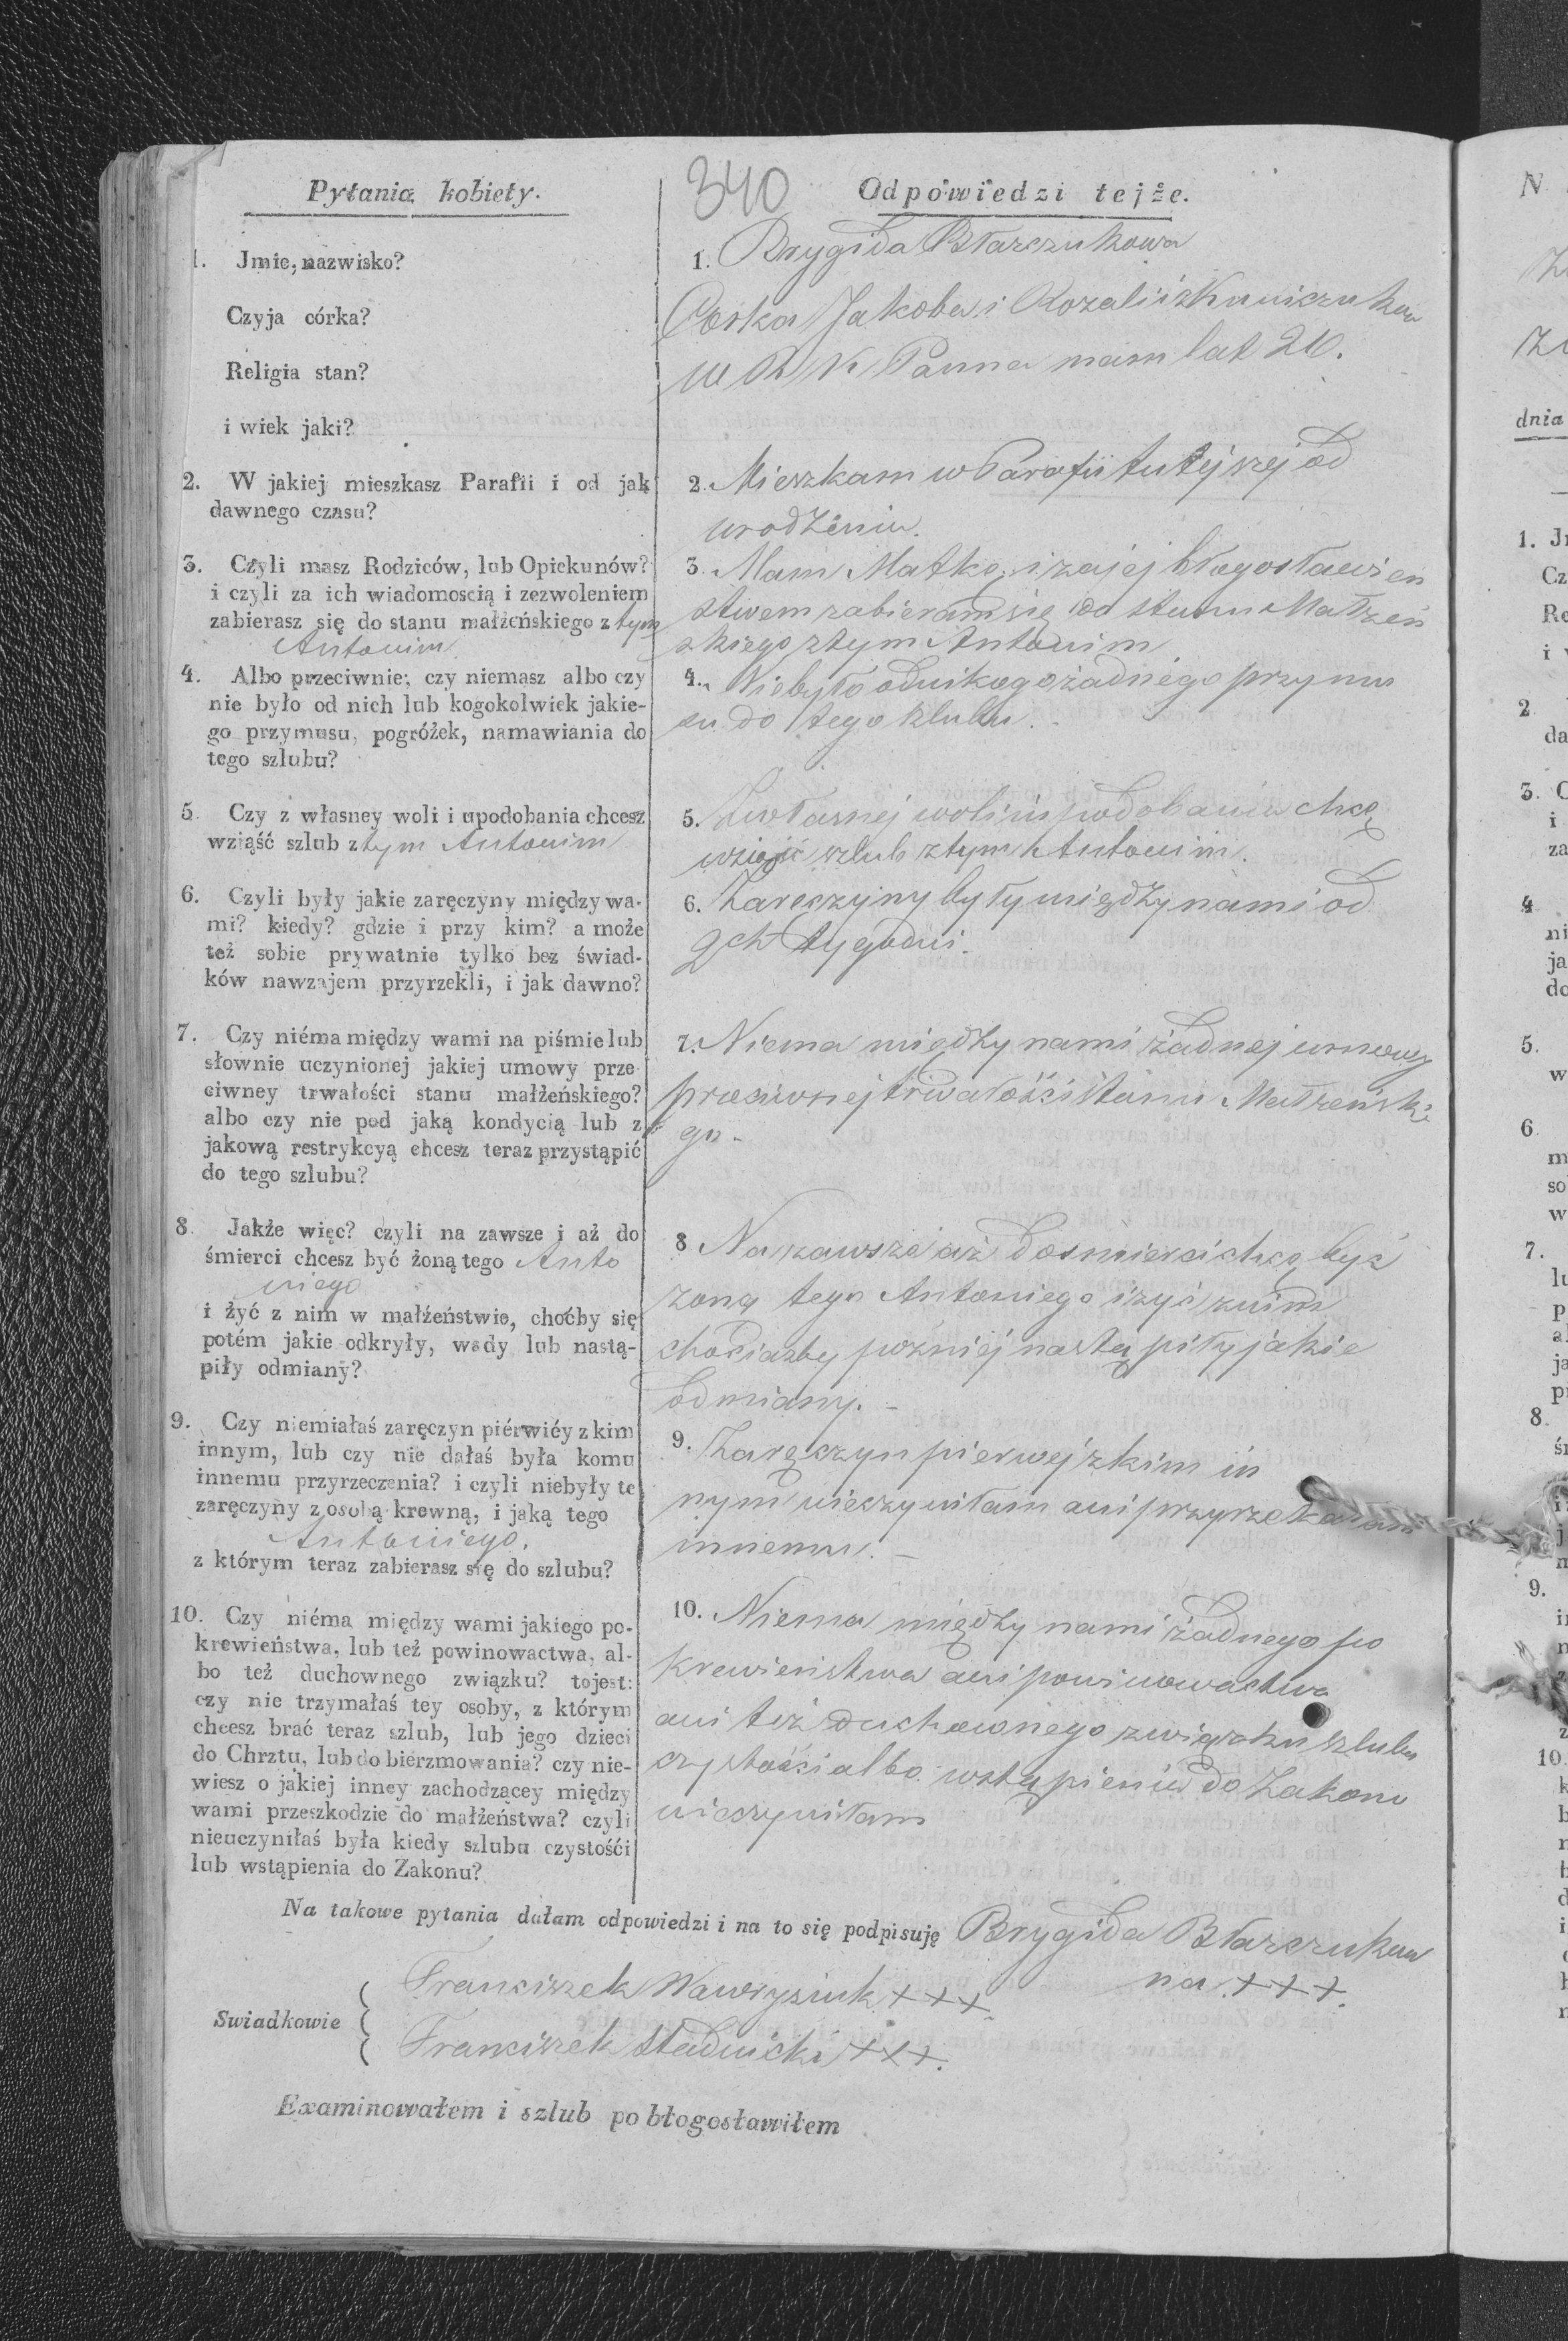 Pytania kobiety.
340
Odpowiedzi tejże.
1. Jmie, nazwisko?
Czyja córka?
Religia stan?
i wiek jaki?
1. Brygida Błaszczukowa
Corka Jakoba i Rozalii z
W R K Panna mam lat 20.
2. W jakiej mieszkasz Parafii i od jak
dawnego czasu?
2. Mieszkam w Parafii tutejszej od
urodzenia.
3. Czyli masz Rodziców, lub Opiekunów?
i czyli za ich wiadomoscią i zezwoleniem
zabierasz się do stanu małżeńskiego z tym
Antonim
3. Mam Matkę i za jej błogosławien
stwem zabieram się do stanu Małżeń
skiego ztym Antonim
4. Albo przeciwnie; czy niemasz albo czy
nie było od nich lub kogokolwiek jakie-
go przymusu, pogróżek, namawiania do
tego szlubu?
4. Niebyło odnikogo żadnego przymu
su do tego slubu.
5. Czy z własney woli i upodobania chcesz
wziąść szlub z tym Antonim
5. Zwłasnej woli i upodobania chcę
wziąść szlub ztym Antonim.
6. Czyli były jakie zaręczyny między wa-
mi? kiedy? gdzie i przy kim? a może
też sobie prywatnie tylko bez świad-
ków nawzajem przyrzekli, i jak dawno?
6. Zareczyny były między nami od
2ch tygodni.
7. Czy niéma między wami na piśmie lub
słownie uczynionej jakiej umowy prze
ciwney trwałości stanu małżeńskiego?
albo czy nie pod jaką kondycią lub z
jakową restrykcyą chcesz teraz przystąpić
do tego szlubu?
7. Niema między nami żadnej umowy
przeciwnej trwałości stanu Małżeńskie
go -
8. Jakże więc? czyli na zawsze i aż do
śmierci chcesz być żoną tego Anto
niego
i żyć z nim w małżeństwie, choćby się
potém jakie odkryły, wady lub nastą-
piły odmiany?
8 Na zawsze aż do smierci chcę być
zoną tego Antoniego i żyć znim
chociażby pożniej nastąpiły jakie
odmiany. -
9. Czy niemiałaś zaręczyn piérwiéy z kim
innym, lub czy nie dałaś była komu
innemu przyrzeczenia? i czyli niebyły te
zaręczyny z osobą krewną, i jaką tego
Antoniego.
z którym teraz zabierasz się do szlubu?
9. Zaręczyn pierwej zkim in
nym nieczyniłam ani przyrzekałam
innemu. -
10. Czy niéma między wami jakiego po-
krewieństwa, lub też powinowactwa, al-
bo też duchownego związku? tojest:
czy nie trzymałaś tey osoby, z którym
chcesz brać teraz szlub, lub jego dzieci
do Chrztu, lub do bierzmowania? czy nie-
wiesz o jakiej inney zachodzącey między
wami przeszkodzie do małżeństwa? czyli
nieuczyniłaś była kiedy szlubu czystośći
lub wstąpienia do Zakonu?
10. Niema między nami żadnego po
krewieństwa ani powinowactwa
ani też duchownego związku szlubu
czystości albo wstąpieniu do Zakonu
nieczyniłam
Na takowe pytania dałam odpowiedzi i na to się podpisuję Brygida Błaszczukow
na +++.
Swiadkowie
Franciszek Wawrysiuk +++
Franciszek Stadnicki +++.
Examinowałem i szlub pobłogosławiłem